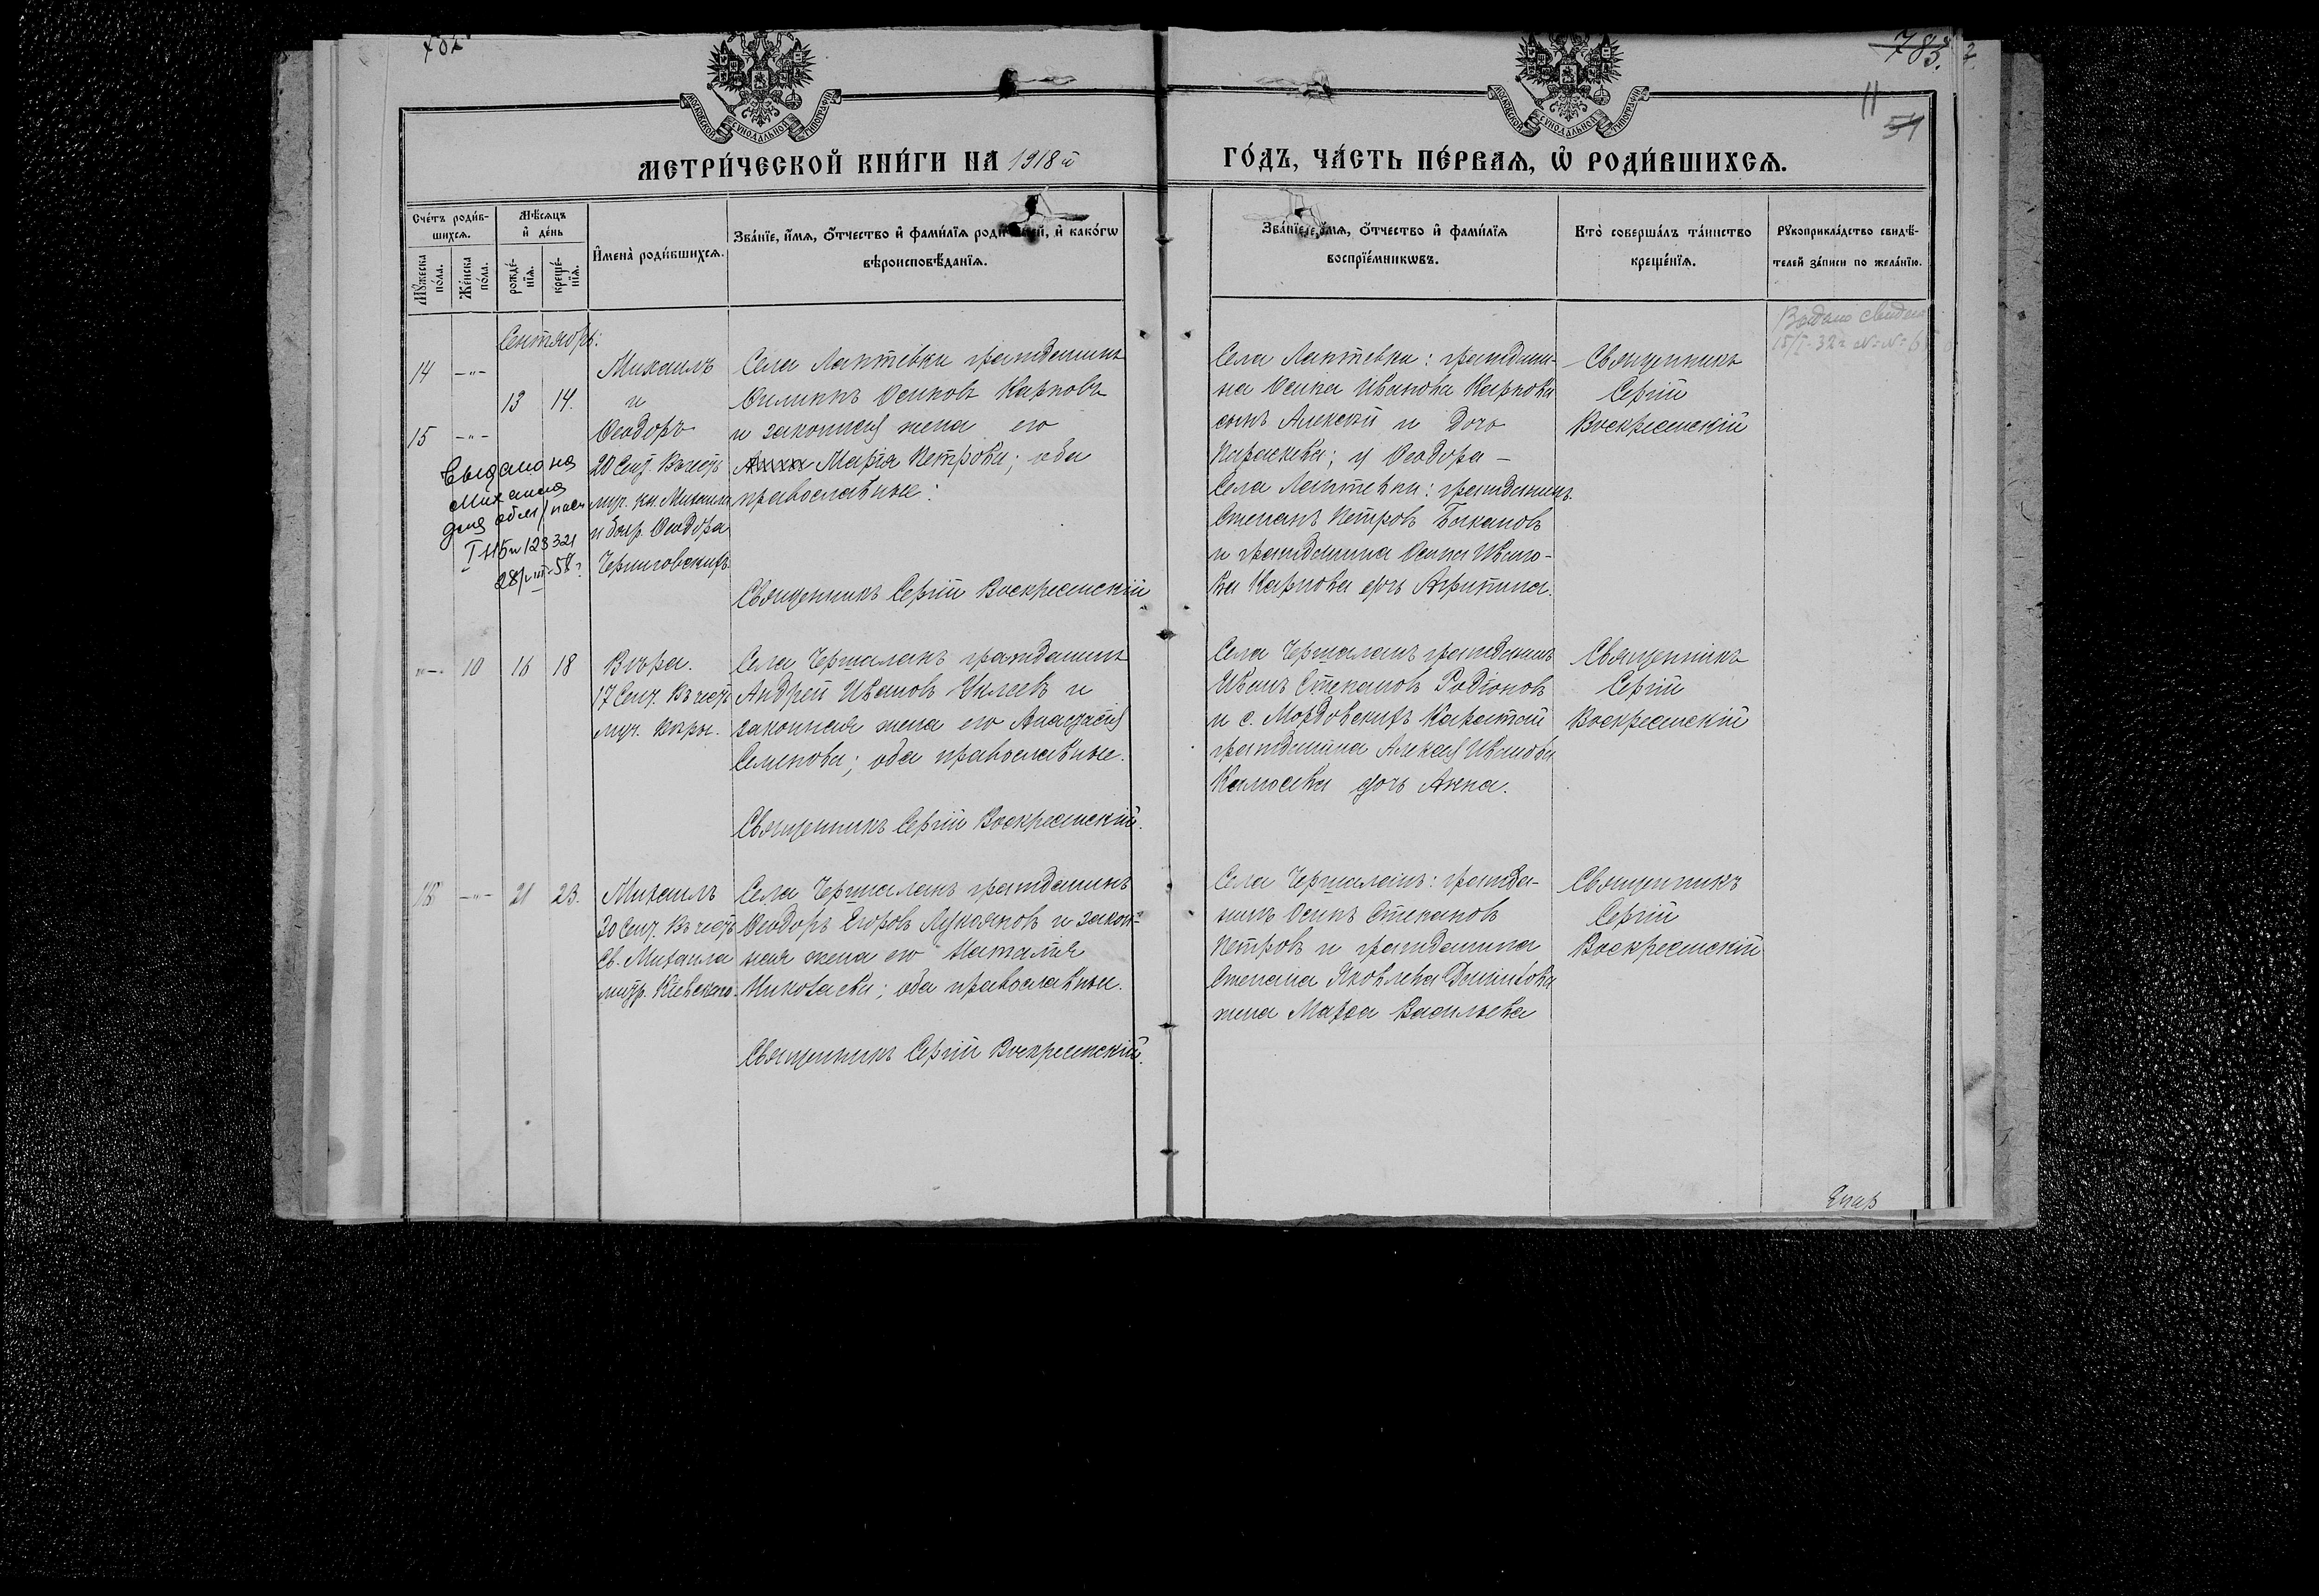 782
783.
11
54
МОСКОВСКОЙ СѴНОДАЛЬНОЙ ТИПОГРАФІИ
МОСКОВСКОЙ СѴНОДАЛЬНОЙ ТИПОГРАФІИ
МЕТРИ́ЧЕСКОЙ КНИ́ГИ НА 1918 й
ГО́ДЪ, ЧА́СТЬ ПЕ́РВАЯ, Ѡ РОДИ́ВШИХСЯ.
Сче́тъ роди́в-
шихся.
Мѣсяцъ
и де́нь
Мꙋжеска по́ла.
Же́нска по́ла.
рожде́-
нїя.
креще́-
нїя.
Имена̀ роди́вшихся.
Зва́нїе, и́мя, ѻ́тчество и фами́лїя родителей, и како́гѡ
вѣроисповѣ́данїя.
Зва́нїе, и́мя, ѻ́тчество и фами́лїя
воспрїе́мникѡвъ.
Кто̀ соверша́лъ та́инство
креще́нїя.
Рꙋкоприкла́дство свидѣ́-
телей за́писи по жела́нїю.
Сентябрь:
14 —"—
13 14.
15 —"—
Михаилъ
и
Ѳеодоръ
20 Сент. Въ честь
муч. кн. Михаила
и бояр. Ѳеодора
Черниговскихъ
Выдано на
Михаила
для обм/пасп
28/VIII-58г.
Села Лаптевки гражданинъ
Филиппъ Осиповъ Карповъ
и законная жена его
Анна Марія Петрова; оба
православные:
Священникъ Сергій Воскресенскій
Села Лаптевки: граждани-
на Осипа Иванова Карпова
сынъ Алексѣй и дочь
Параскева; у Ѳеодора —
Села Лаптевки: гражданинъ
Степанъ Петровъ Быкановъ
и гражданина Осипа Ивано-
ва Карпова дочь Агрипина.
Священникъ
Сергій
Воскресенскій
Выдано свидет
15/I-32г
"—" 10 16 18
Вѣра.
17 Сент. Въ честь
муч. Вѣры.
Села Чершаланъ гражданинъ
Андрей Ивановъ Уклеевъ и
законная жена его Анастасія
Семенова; оба православные.
Священникъ Сергій Воскресенскій.
Села Чершаланъ гражданинъ
Иванъ Степановъ Родіоновъ
и с. Мордовскихъ Каратай
гражданина Алексѣя Иванова
дочь Анна.
Священникъ
Сергій
Воскресенскій
16 —"— 21 23.
Михаилъ
30 Сент. Въ честь
Св. Михаила
митр. Кіевскаго.
Села Чершаланъ гражданинъ
Ѳеодоръ Егоровъ Лукояновъ и закон-
ная жена его Наталія
Николаева; оба православные.
Священникъ Сергій Воскресенскій.
Села Чершаланъ: гражда-
нинъ Осипъ Степановъ
Петровъ и гражданина
Степана Яковлева Данилова
жена Марѳа Васильева
Священникъ
Сергій
Воскресенскій